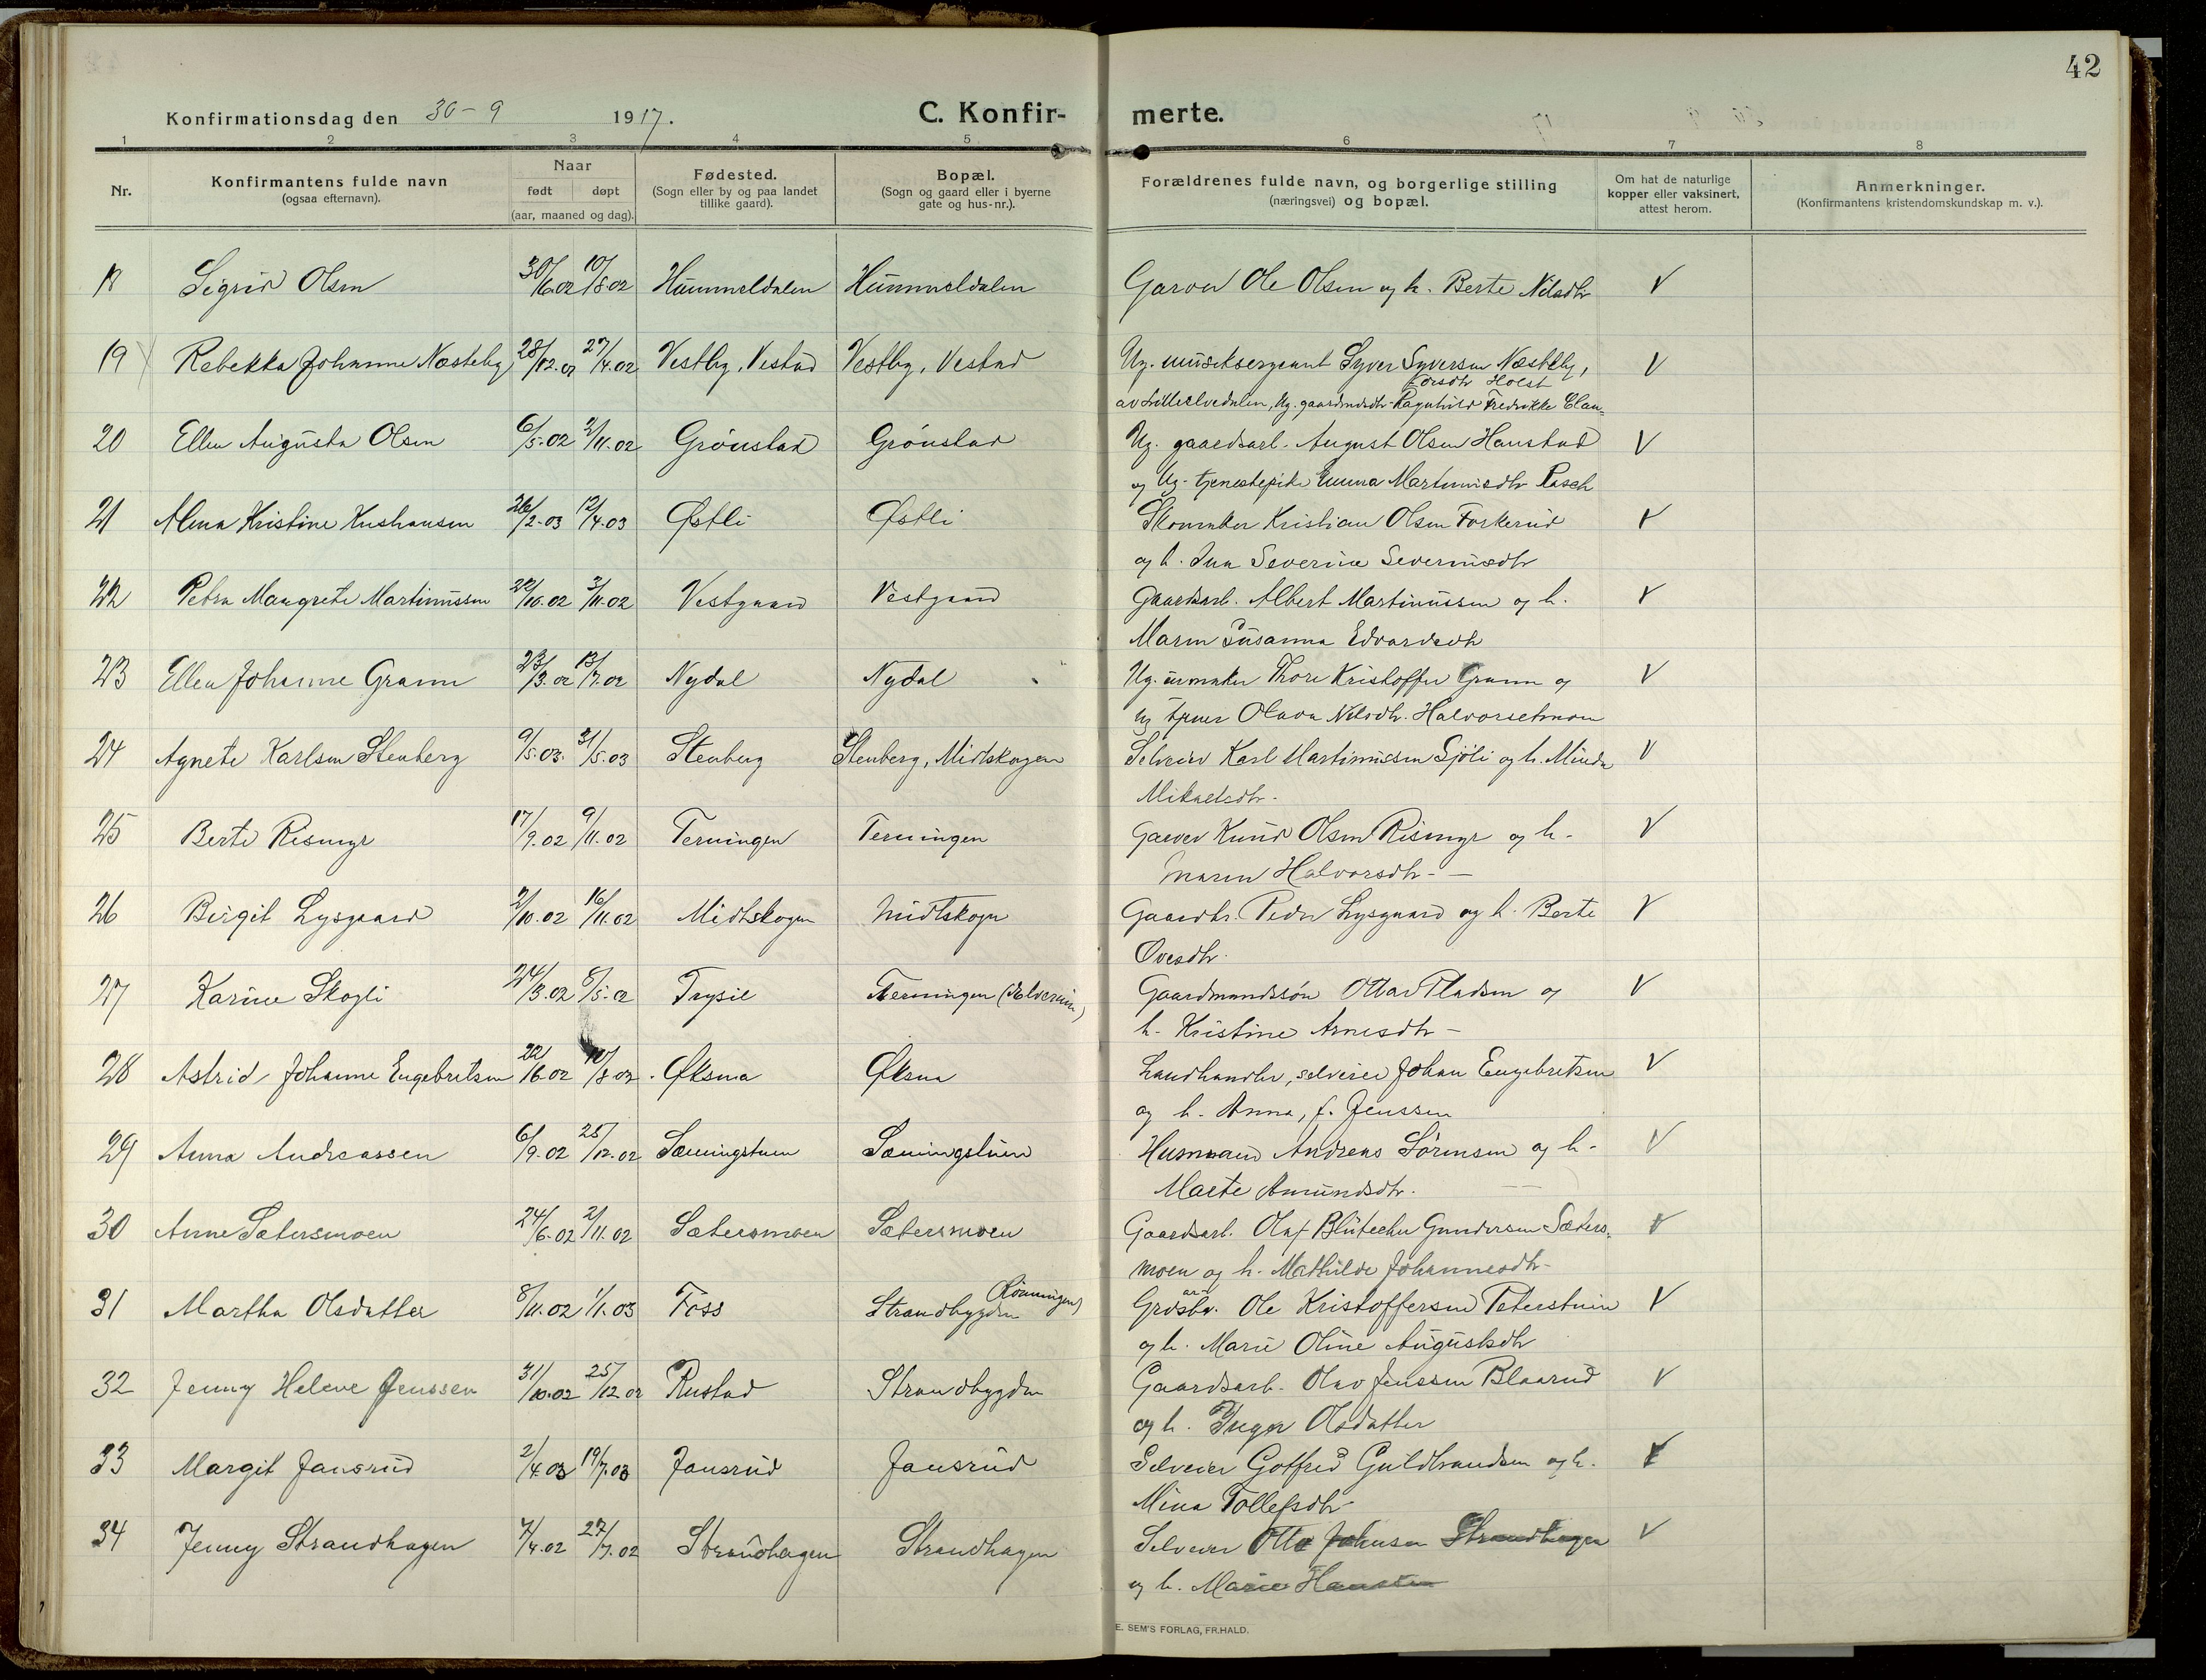 42
Konfirmationsdag den 30-9 1917.
C. Konfir- merte.
1 2 3 4 5 6 7 8
Nr.
Konfirmantens fulde navn
(ogsaa efternavn).
Naar
født døpt
(aar, maaned og dag).
Fødested.
(Sogn eller by og paa landet
tillike gaard).
Bopæl.
(Sogn og gaard eller i byerne
gate og hus-nr.).
Forældrenes fulde navn, og borgerlige stilling
(næringsvei) og bopæl.
Om hat de naturlige
kopper eller vaksinert,
attest herom.
Anmerkninger.
(Konfirmantens kristendomskundskap m. v.).
18 Sigrid Olsen 30/6.02 10/8.02 Hummeldalen Hummeldalen Garver Ole Olsen og h. Berte Nilsdtr V
19 Rebekka Johanne Næsteby 28/12.01 27/4.02 Vestby, Vestad Vestby, Vestad Ug. musiksergeant Syver Syversen Næsteby, V
Edisdtr Holst
av Lilleelvedalen, Ug. gaardmdsdtr Ragnhild Fredrikke Clau-
20 Ellen Augusta Olsen 6/5-02 2/11.02 Grønstad Grønstad Ug. gaardsarb. August Olsen Hanstad V
og Ug. tjenestepike Emma Martinusdtr Rasch
21 Alma Kristine Kushausen 26/2-03 12/4.03 Østli Østli Skomaker Kristian Olsen Forkerud V
og h. Ina Severine Severinsdtr
22 Petra Margrete Martinussen 22/10.02 3/11.02 Vestgaard Vestgaard Gaardsarb. Albert Martinussen og h. V
Maren Susanna Edvardsdtr
23 Ellen Johanne Gramm 23/3.02 13/7.02 Nydal Nydal Ug. urmaker Thore Kristoffer Gramm og V
ug tjener Olava Nilsdtr. Halvorsetmoen
24 Agnete Karlsen Stenberg 9/5.03. 31/5.03 Stenberg Stenberg, Midtskogen Selveier Karl Martinussen Sjöli og h. Minda V
Mikaelsdtr.
25 Berte Rismyr 17/9.02 9/11.02 Terningen Terningen Garver Knud Olsen Rismyr og h. V
Maren Halvorsdtr. -
26 Birgit Lysgaard 2/10.02 16/11.02 Midtskogen Midtskogn Gaardbr. Peder Lysgaard og h. Berte V
Ovesdtr.
27 Karine Skogli 24/3.02 8/5.02 Trysil Terningen (Elverum) Gaardmandssøn Ottar Pladsen og V
h. Kristine Arnesdtr -
28 Astrid Johanne Engebretsen 22/6.02 10/8.02. Øksna Øksna Landhandler, selveier Johan Engebretsen V
og h. Anna, f. Jenssen
29 Anna Andreassen 6/9.02 25/12.02 Sæmingstuen Sæmingstuen Husmand Andreas Sörensen og h. V
Marte Amundsdtr.
30 Anne Sætersmoen 24/6.02 2/11.02 Sætersmoen Sætersmoen Gaardsarb. Olaf Blütecher Gundersen Sæters- V
moen og h. Mathilde Johannesdtr.
31 Martha Olsdatter 8/11.02 1/1.03 Foss Strandbygden (Rønningen) Grdsbr. Ole Kristoffersen Peterstuen V
og h. Marie Oline Augustsdtr
32 Jenny Helene Jenssen 31/10.02 25/12.02 Rustad Strandbygden Gaardsarb. Olav Jenssen Blaarud V
og h. Inga Olsdatter
33 Margit Jansrud 2/4.03 19/7.03 Jansrud Jansrud Selveier Gotfred Guldbrandsen og h. V
Mina Tollefsdtr
34 Jenny Strandhagen 7/4.02 27/7.02 Strandhagen Strandhagen Selveier Otto Johnsen Strandhagen V
og h. Marie Hansten
E. SEM'S FORLAG, FR.HALD.